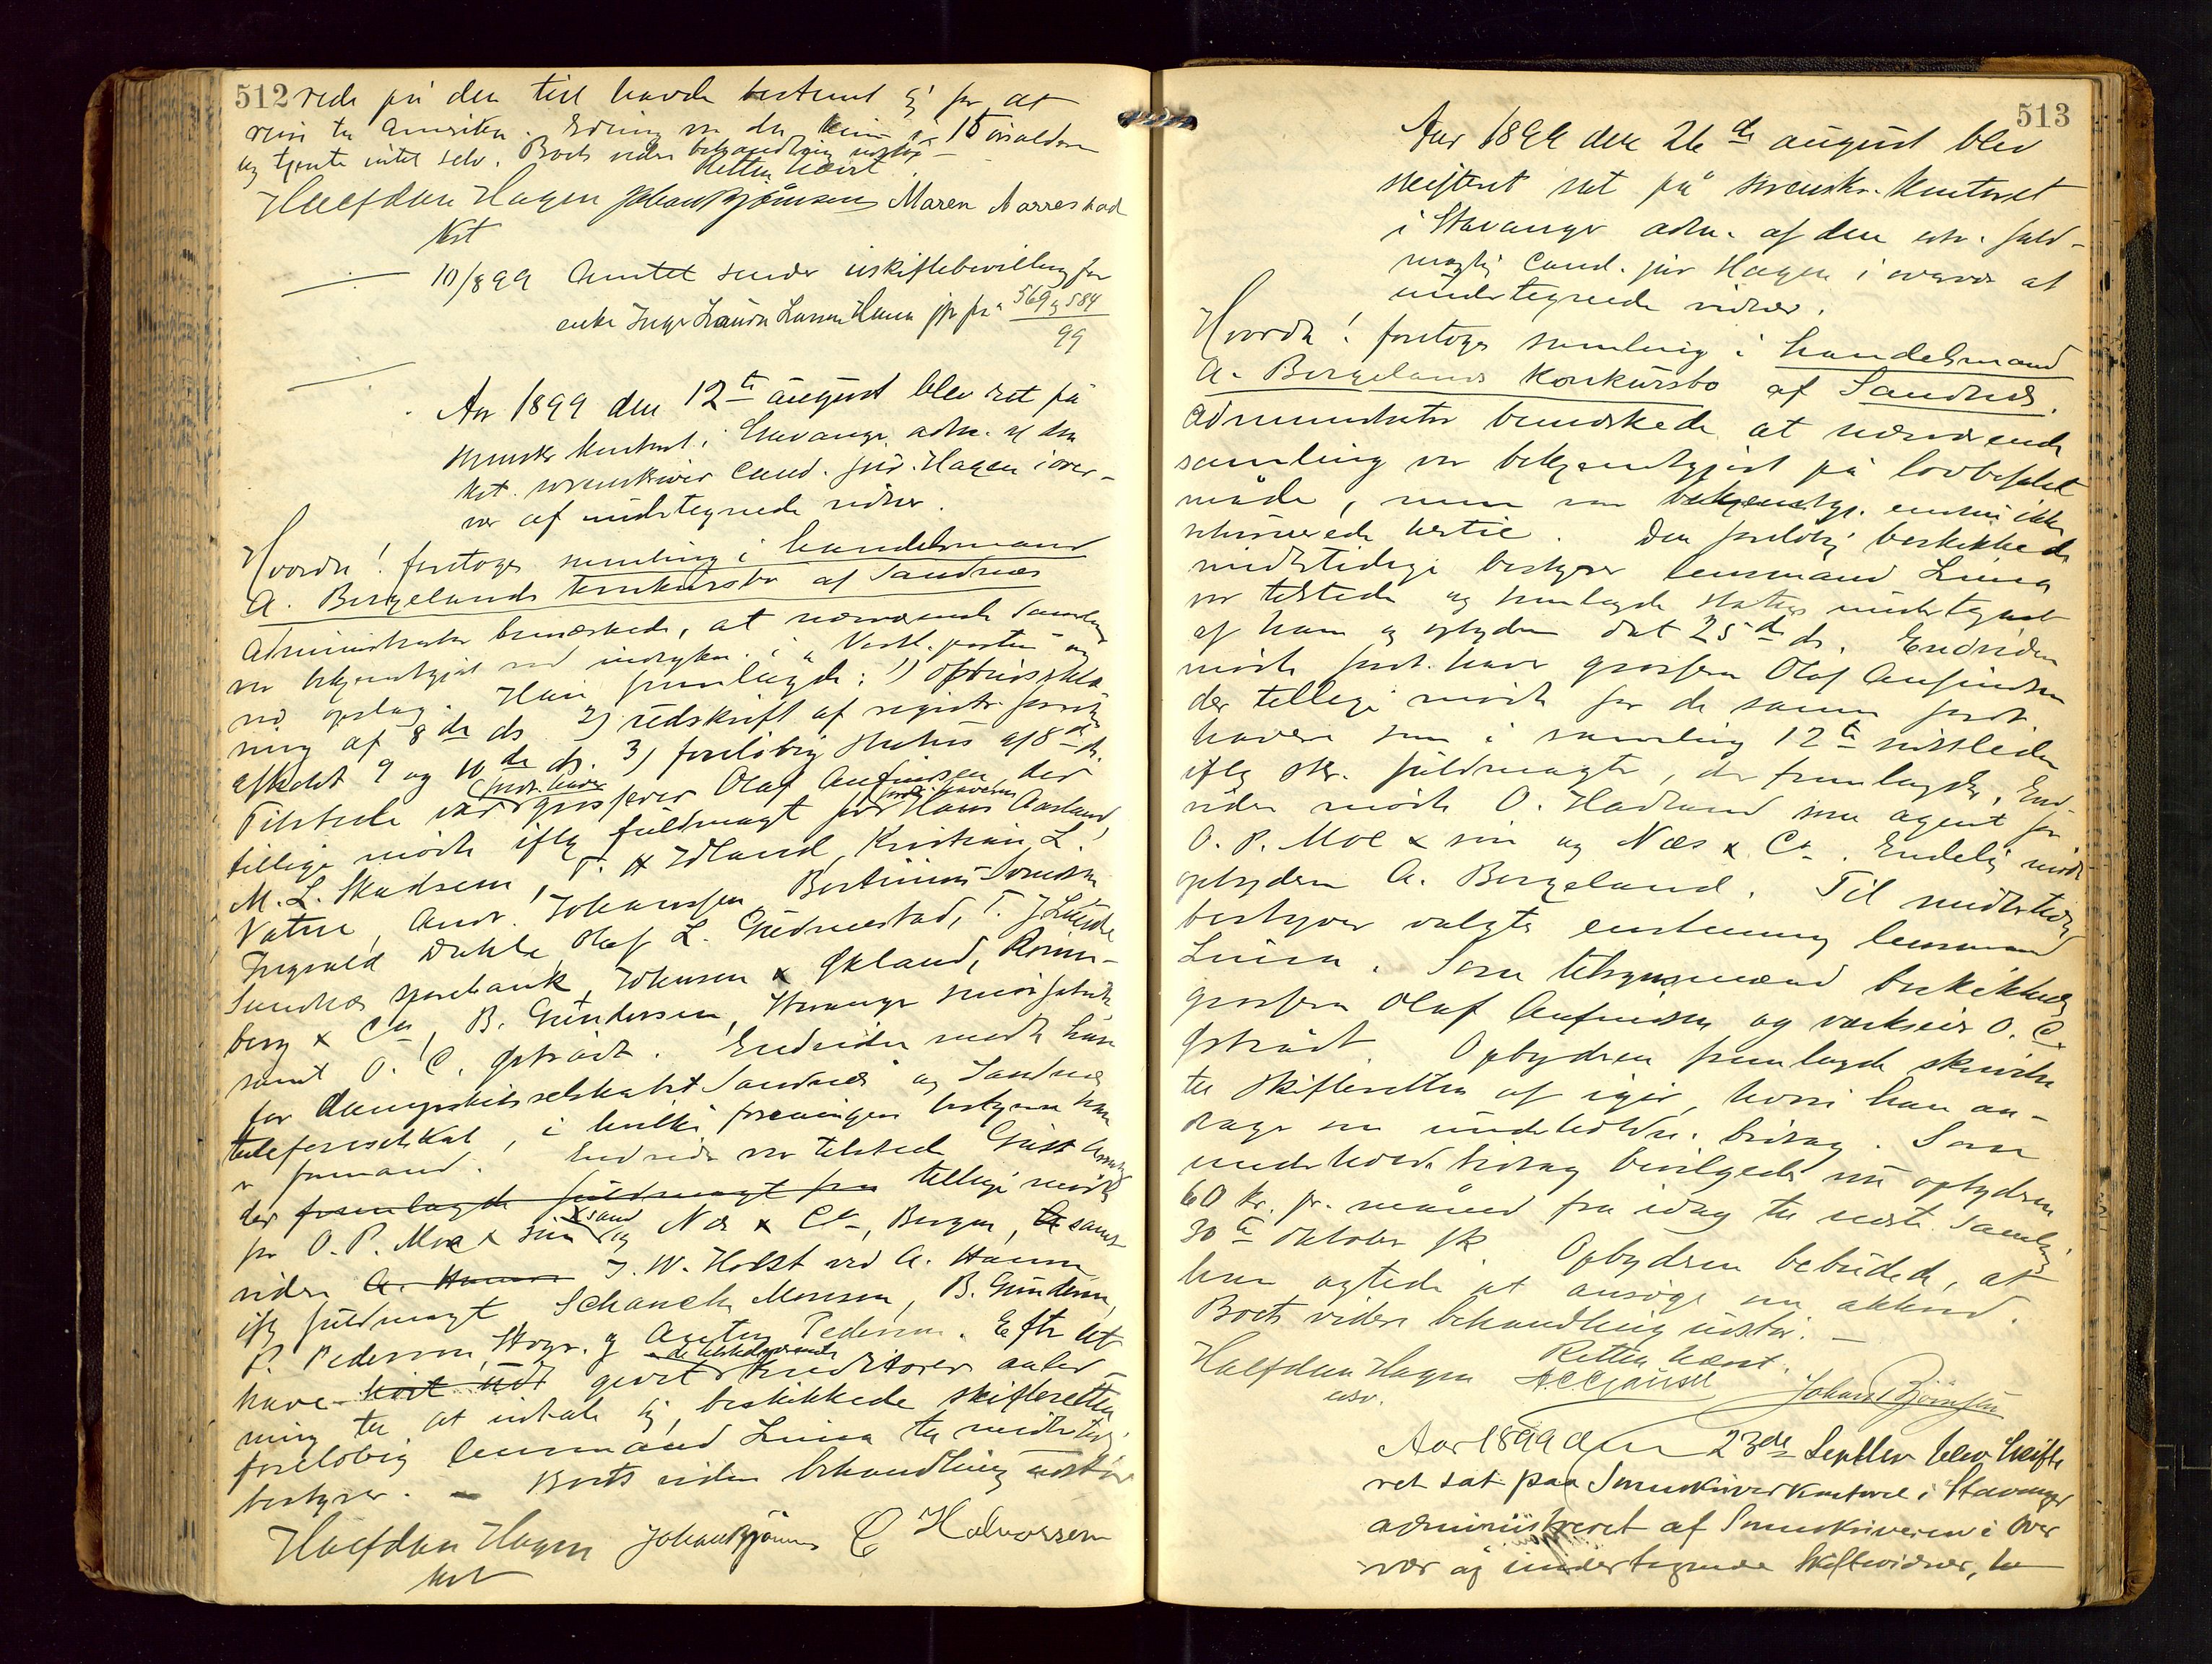 512 rede på den tid havde bestemt sig for at
reise til Amerika. Edning var da kun 15 årsalderen
og tjente intet selv. Boets videre behandling udstår
Retten hævet
Halfdan Hagen Johan Bjørnsen Maren Narrestad
kst
10/8 99 Amtet sender uskiftebevilling for
enke Inger Laura Larsen Hana jfr fra 569 og 584
99
Aar 1899 den 12te august blev ret på
sorenskr. kontoret i Stavanger adm. af den
kst. sorenskriver Cand. jur. Hagen i over-
vær af undertegnede vidner.
Hvorda! foretoges samling i handelsmand
A. Bergelands konkursbo af Sandnes
Administrator bemærkede, at nærværende samling
var bekjendtgjort ved indrykn. i "Vestl.posten" og
ved opslag. Han fremlagde: 1) Opbudserklæ-
ring af 8de ds. 2) udskrift af registr. forret.
afholdt 9 og 10de ds. 3) foreløbig status af 8de ds.
Tilstede var fordr.haver grosserer Olaf Aufindsen, der
tillige mødte iflg fuldmagt for fordr. haverne Hans Aarsland,
M. L. Skadsem, T. A. Idland, Kristian L.
Vatne, Andr. Johannsen, Bertinius Svendsen
Ingvald Dahle, Olaf L. Gudmestad, T. J. Lunde
Sandnes sparebank, Johnsen & Økland, Rosen-
berg & Co, B. Gundersen, Stavanger smørfabrik
samt O. C. Østrådt. Endvidere mødte han
for Dampskibsselskabet Sandnes og Sandnes
telefonselskab, i hvilke foreningers bestyrere han
er formand. Endvidere var tilstede Gust
der fremlagde fuldmagt fra tillige mødte
for O. P. Moe & søn og Næs & Co, Bergen, samt
videre A. Hansen J. W. Holst ved A. Hansen
iflg fuldmagt Schanche Monsen, B. Gundersen,
P. Pedersen, Stvgr. og Anton Pedersen. Efter at
have hørt udt givet de tilstedeværende kreditorer anled-
ning til at udtale sig, beskikkede skifteretten
foreløbig lensmand Lima til midlertidig
bestyrer. — Boets videre behandling udstår
Halfdan Hagen Johan Bjørnsen C Halvorssen
kst
513
Aar 1899 den 26de august blev
skifteret sat på sorenskr. kontoret
i Stavanger adm. af den edsv. fuld-
mægtig Cand. jur Hagen i overvær af
undertegnede vidner.
Hvorda! foretoges samling i handelsmand
A. Bergelands konkursbo af Sandnes.
Administrator bemærkede at nærværende
samling var bekjendtgjort på lovbefalet
måde, men var bekjendtgj. endnu ikke
returnerede hertil. Den foreløbig beskikkede
midlertidige bestyrer lensmand Lima
var tilstede og fremlagde status undertegnet
af ham og opbyderen dat 25de ds. Endvidere
mødte fordr.haver grosserer Olaf Aufindsen
der tillige mødte for de samme fordr.
havere som i samling 12te sidstleden
iflg skr. fuldmagter, der fremlagdes. End-
videre mødte O. Hadland som agent for
O. P. Moe & søn og Næs & Co. Endelig mødte
opbyderen A. Bergeland. Til midlertidig
bestyrer valgtes enstemmig lensmand
Lima. Som tilsynsmænd beskikkedes
grosserer Olaf Aufindsen og værkseier O. C.
Østrådt. Opbyderen fremlagde skrivelse
til skifteretten af igår, hvori han an-
drager om underholdn. bidrag. Som
underholdn. bidrag bevilgedes nu opbyderen
60 kr. pr. måned fra idag til næste samling
30te oktober fk. Opbyderen bebudede, at
han agtede at ansøge om akkord.
Boets videre behandling udstår. —
Retten hævet.
Halfdan Hagen Johan Bjørnsen
edsv.
Aar 1899 den 23de Septber blev skifte
ret sat paa Sorenskriverkontoret i Stavanger
administreret af Sorenskriveren i over
vær af undertegnede skiftevidner, to